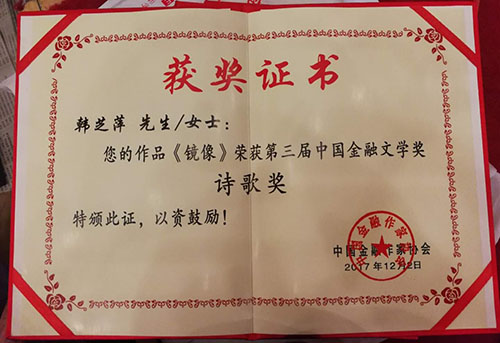 获奖证书
韩芝萍 先生/女士：
您的作品《镜像》荣获第三届中国金融文学奖
诗歌奖
特颁此证，以资鼓励！
中国金融作家协会
中国金融作家协会
2017年12月2日